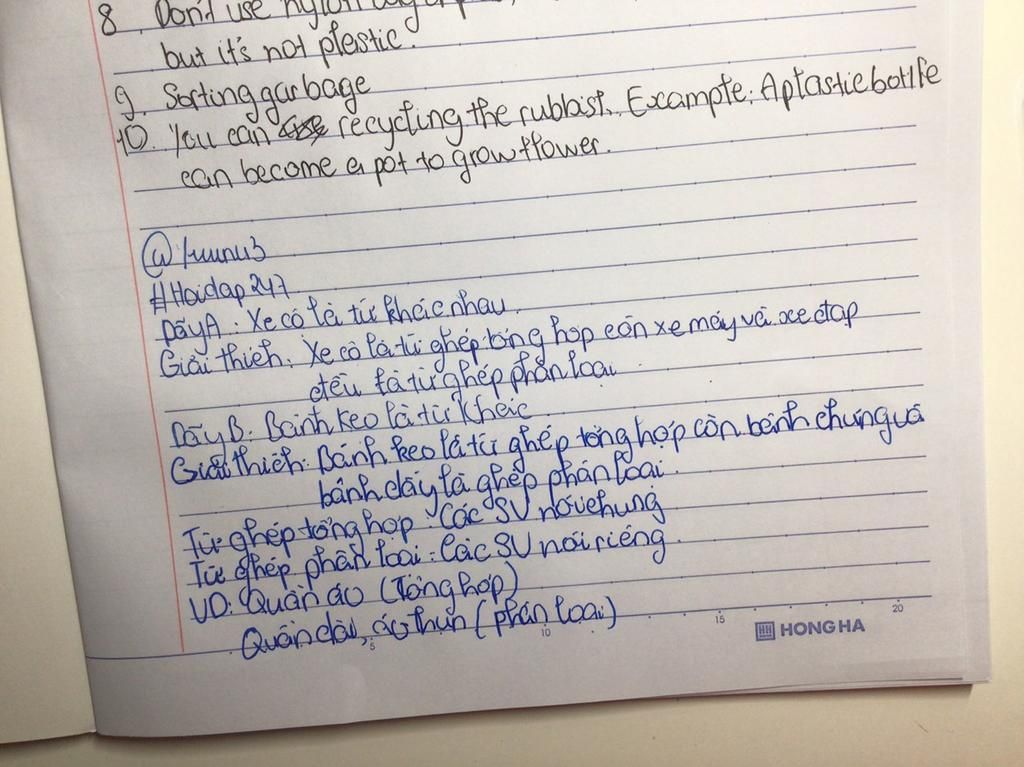 8. Don't use nylon
but it's not plestic.
9. Sorting garbage
10. You can recycling the rubbist. Example: A plastie bottle
can become a pot to grow flower.
#Hoidap247
Dãy A: Xe cộ là từ khác nhau
Giải thích: Xe cộ là từ ghép tổng hợp còn xe máy và xe đạp
đều là từ ghép phân loại
Dãy B: Bánh kẹo là từ khác
Giải thích: Bánh kẹo là từ ghép tổng hợp còn bánh chưng và
bánh dày là ghép phân loại.
Từ ghép tổng hợp: Các SV nói chung
Từ ghép phân loại: Các SV nói riêng.
VD: Quần áo (Tổng hợp)
Quần dài, áo thun (phân loại)
5 10 15 20
HH HONG HA